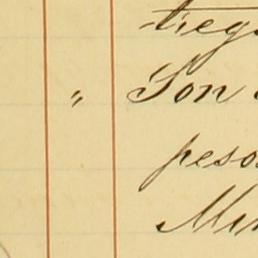 treg
" Son
peso
Min